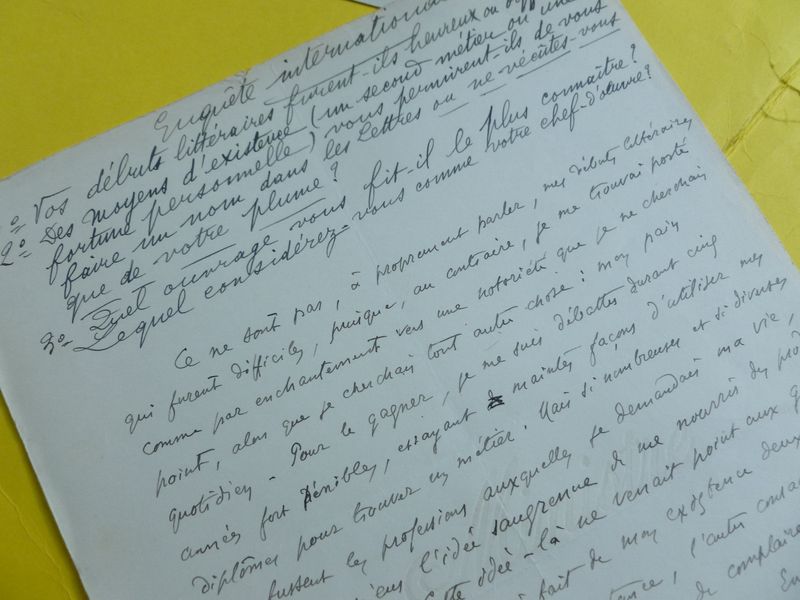 Enquête internationa
1º Vos débuts littéraires furent-ils heureux ou
2º Des moyens d'existence (un second métier ou une
fortune personnelle) vous permirent-ils de vous
faire un nom dans les Lettres ou ne vécûtes-vous
que de votre plume ?
3º Quel ouvrage vous fit-il le plus connaître ?
Lequel considérez-vous comme votre chef-d'œuvre ?
Ce ne sont pas, à proprement parler, mes débuts littéraires
qui furent difficiles, puisque, au contraire, je me trouvai porté
comme par enchantement vers une notoriété que je ne cherchais
point, alors que je cherchais tout autre chose : mon pain
quotidien - Pour le gagner, je me suis débattu durant cinq
années fort pénibles, essayant maintes façons d'utiliser mes
diplômes pour trouver un métier. Mais si nombreuses et si diverses
fussent les professions auxquelles je demandais ma vie,
l'idée saugrenue de me nourrir des
idée-là ne venait point aux
fait de mon existence deux
l'autre
de complaire